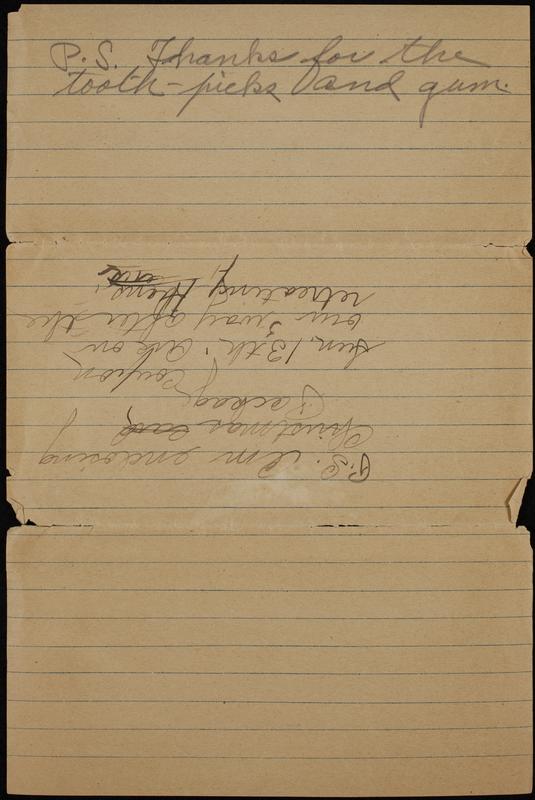 P.S. Thanks for the
tooth-picks and gum.
P.S. Im enclosing
Christmas
Package
Coupon
Sun. 13th. Are on
our way after the
retreating Huns.